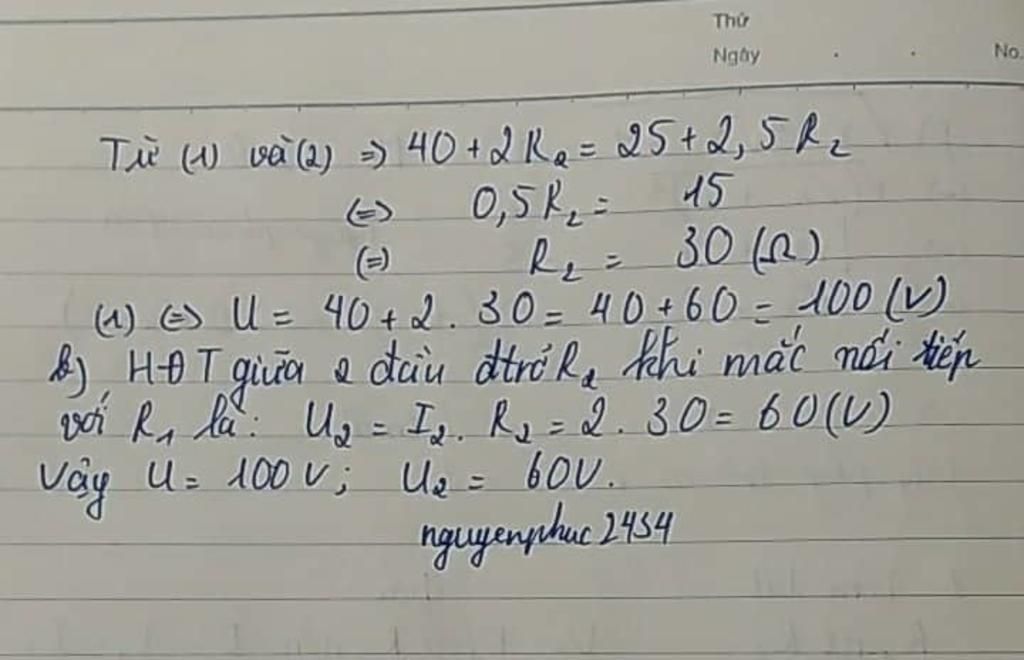 Thứ
Ngày . . No.
Từ (1) và (2) => 40 + 2R₂ = 25 + 2,5R₂
<=> 0,5R₂ = 15
(=) R₂ = 30 (Ω)
(1) <=> U = 40 + 2 . 30 = 40 + 60 = 100 (V)
b) HĐT giữa 2 đầu đtrở R₂ khi mắc nối tiếp
với R₁ là: U₂ = I₂ . R₂ = 2 . 30 = 60 (V)
Vậy U = 100 V; U₂ = 60V.
nguyenphuc2454